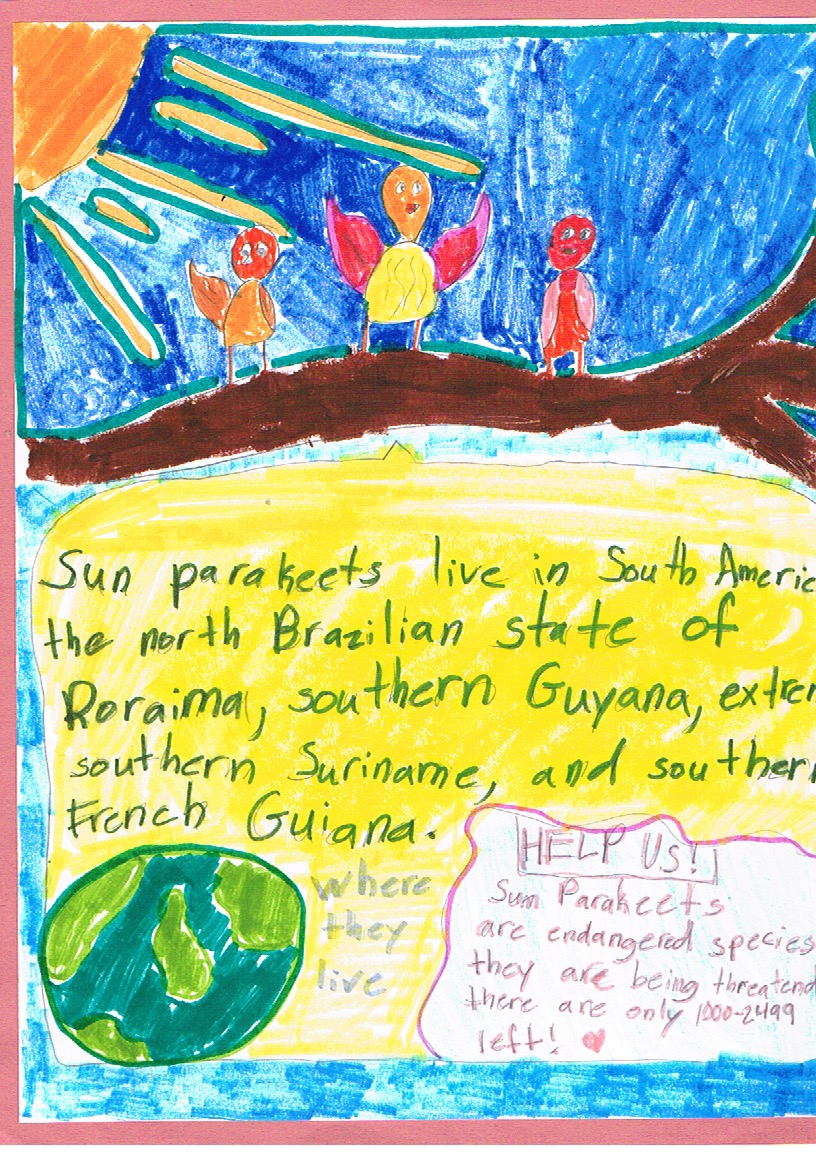 Sun parakeets live in South Americ
the north Brazilian state of
Roraima, southern Guyana, extrem
southern Suriname, and southern
French Guiana.
where
they
live
HELP US!
Sun Parakeets
are endangered species
they are being threatend
there are only 1000-2499
left!